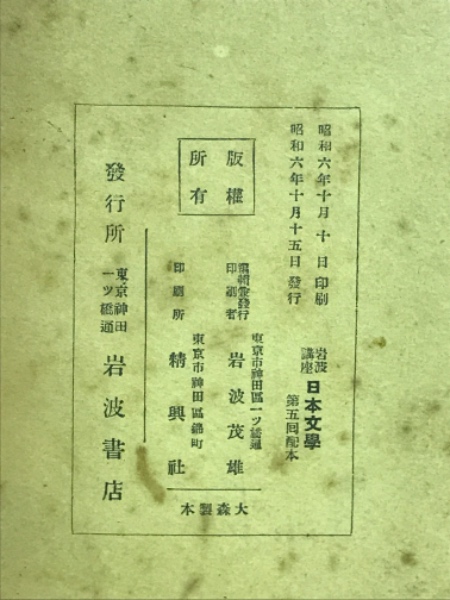 昭和六年十月十日印刷
昭和六年十月十五日發行
岩波講座
日本文學
第五回配本
版權
所有
編輯兼發行
印刷者
東京市神田區一ツ橋通
岩波茂雄
印刷所
東京市神田區錦町
精興社
大森製本
發行所
東京神田
一ツ橋通
岩波書店